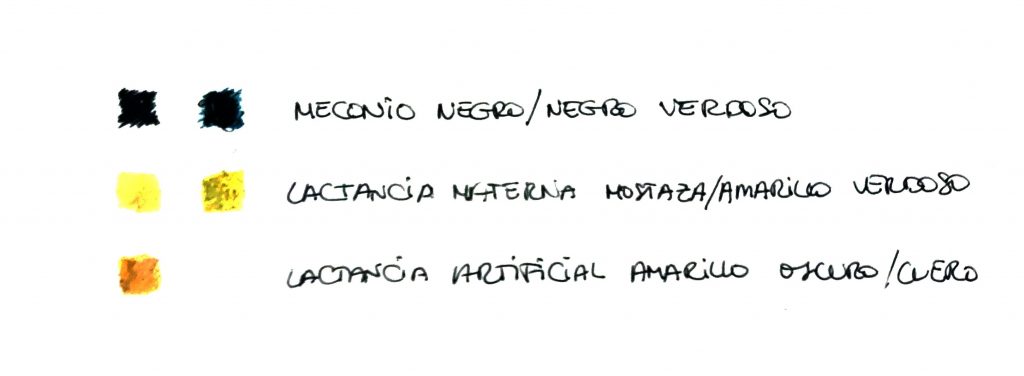 MECONIO NEGRO/NEGRO VERDOSO
LACTANCIA MATERNA MOSTAZA/AMARILLO VERDOSO
LACTANCIA ARTIFICIAL AMARILLO OSCURO/CUERO